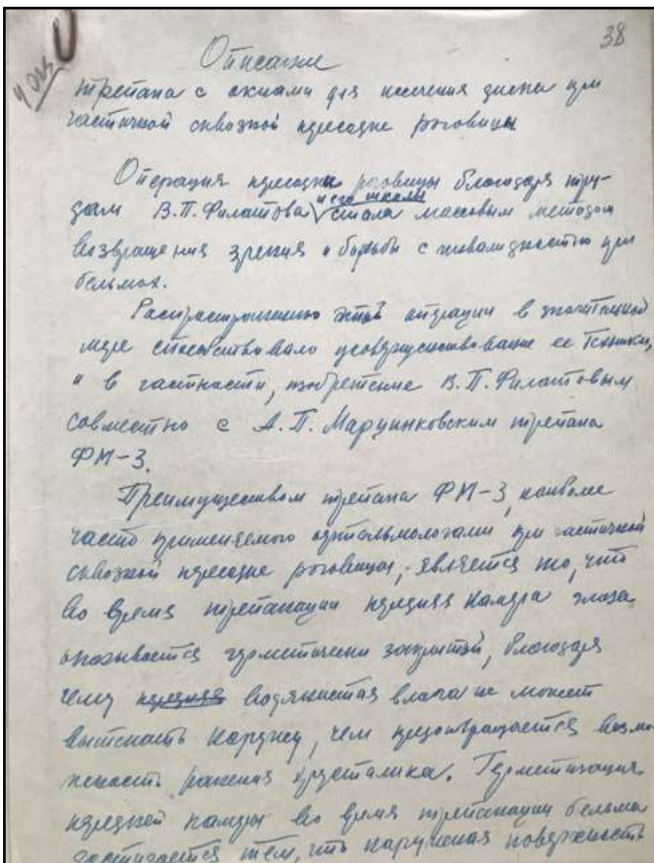 38
4 экз
Описание
трепана с окнами для иссечения диска при
частичной сквозной пересадке роговицы
Операция пересадки роговицы благодаря тру-
дам В.П. Филатова и его школы стала массовым методом
возвращения зрения и борьбы с инвалидностью при
бельмах.
Распространению этой операции в значительной
мере способствовало усовершенствование ее техники,
и в частности, изобретение В.П. Филатовым
совместно с А.П. Марцинковским трепана
ФМ-3.
Преимуществом трепана ФМ-3, наиболее
часто применяемого офтальмологами при частичной
сквозной пересадке роговицы, является то, что
во время трепанации передняя камера глаза
оказывается герметически закрытой, благодаря
чему передняя водянистая влага не может
вытекать наружу, чем предотвращается возмо-
жность ранения хрусталика. Герметизация
передней камеры во время трепанации бельма
достигается тем, что наружная поверхность